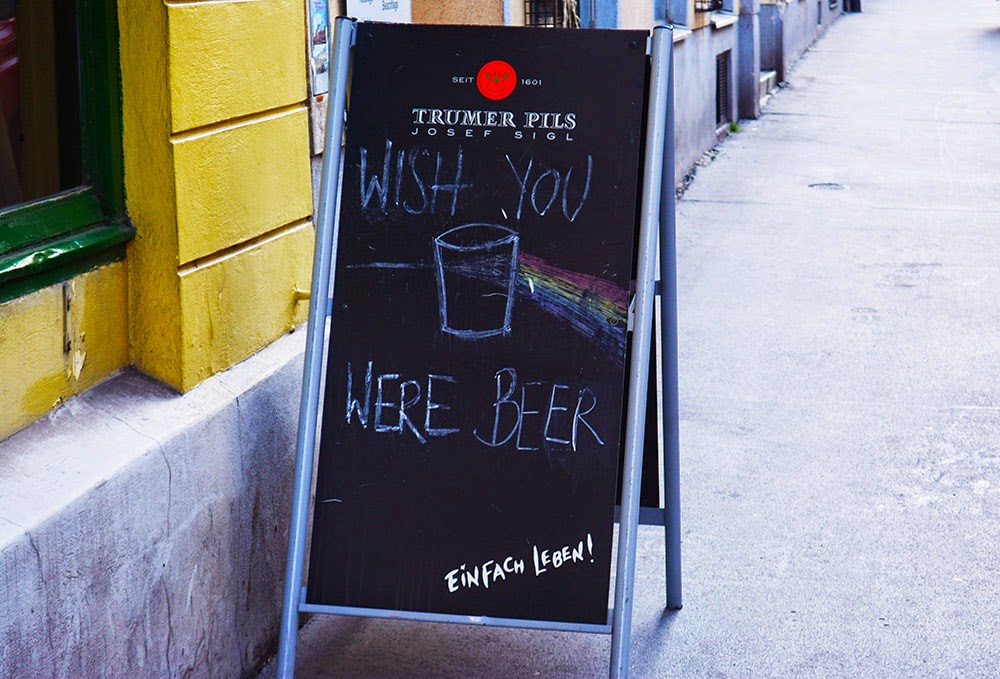 SEIT 1601
TRUMER PILS
JOSEF SIGL
WISH YOU
WERE BEER
EiNFACH LEBEN!